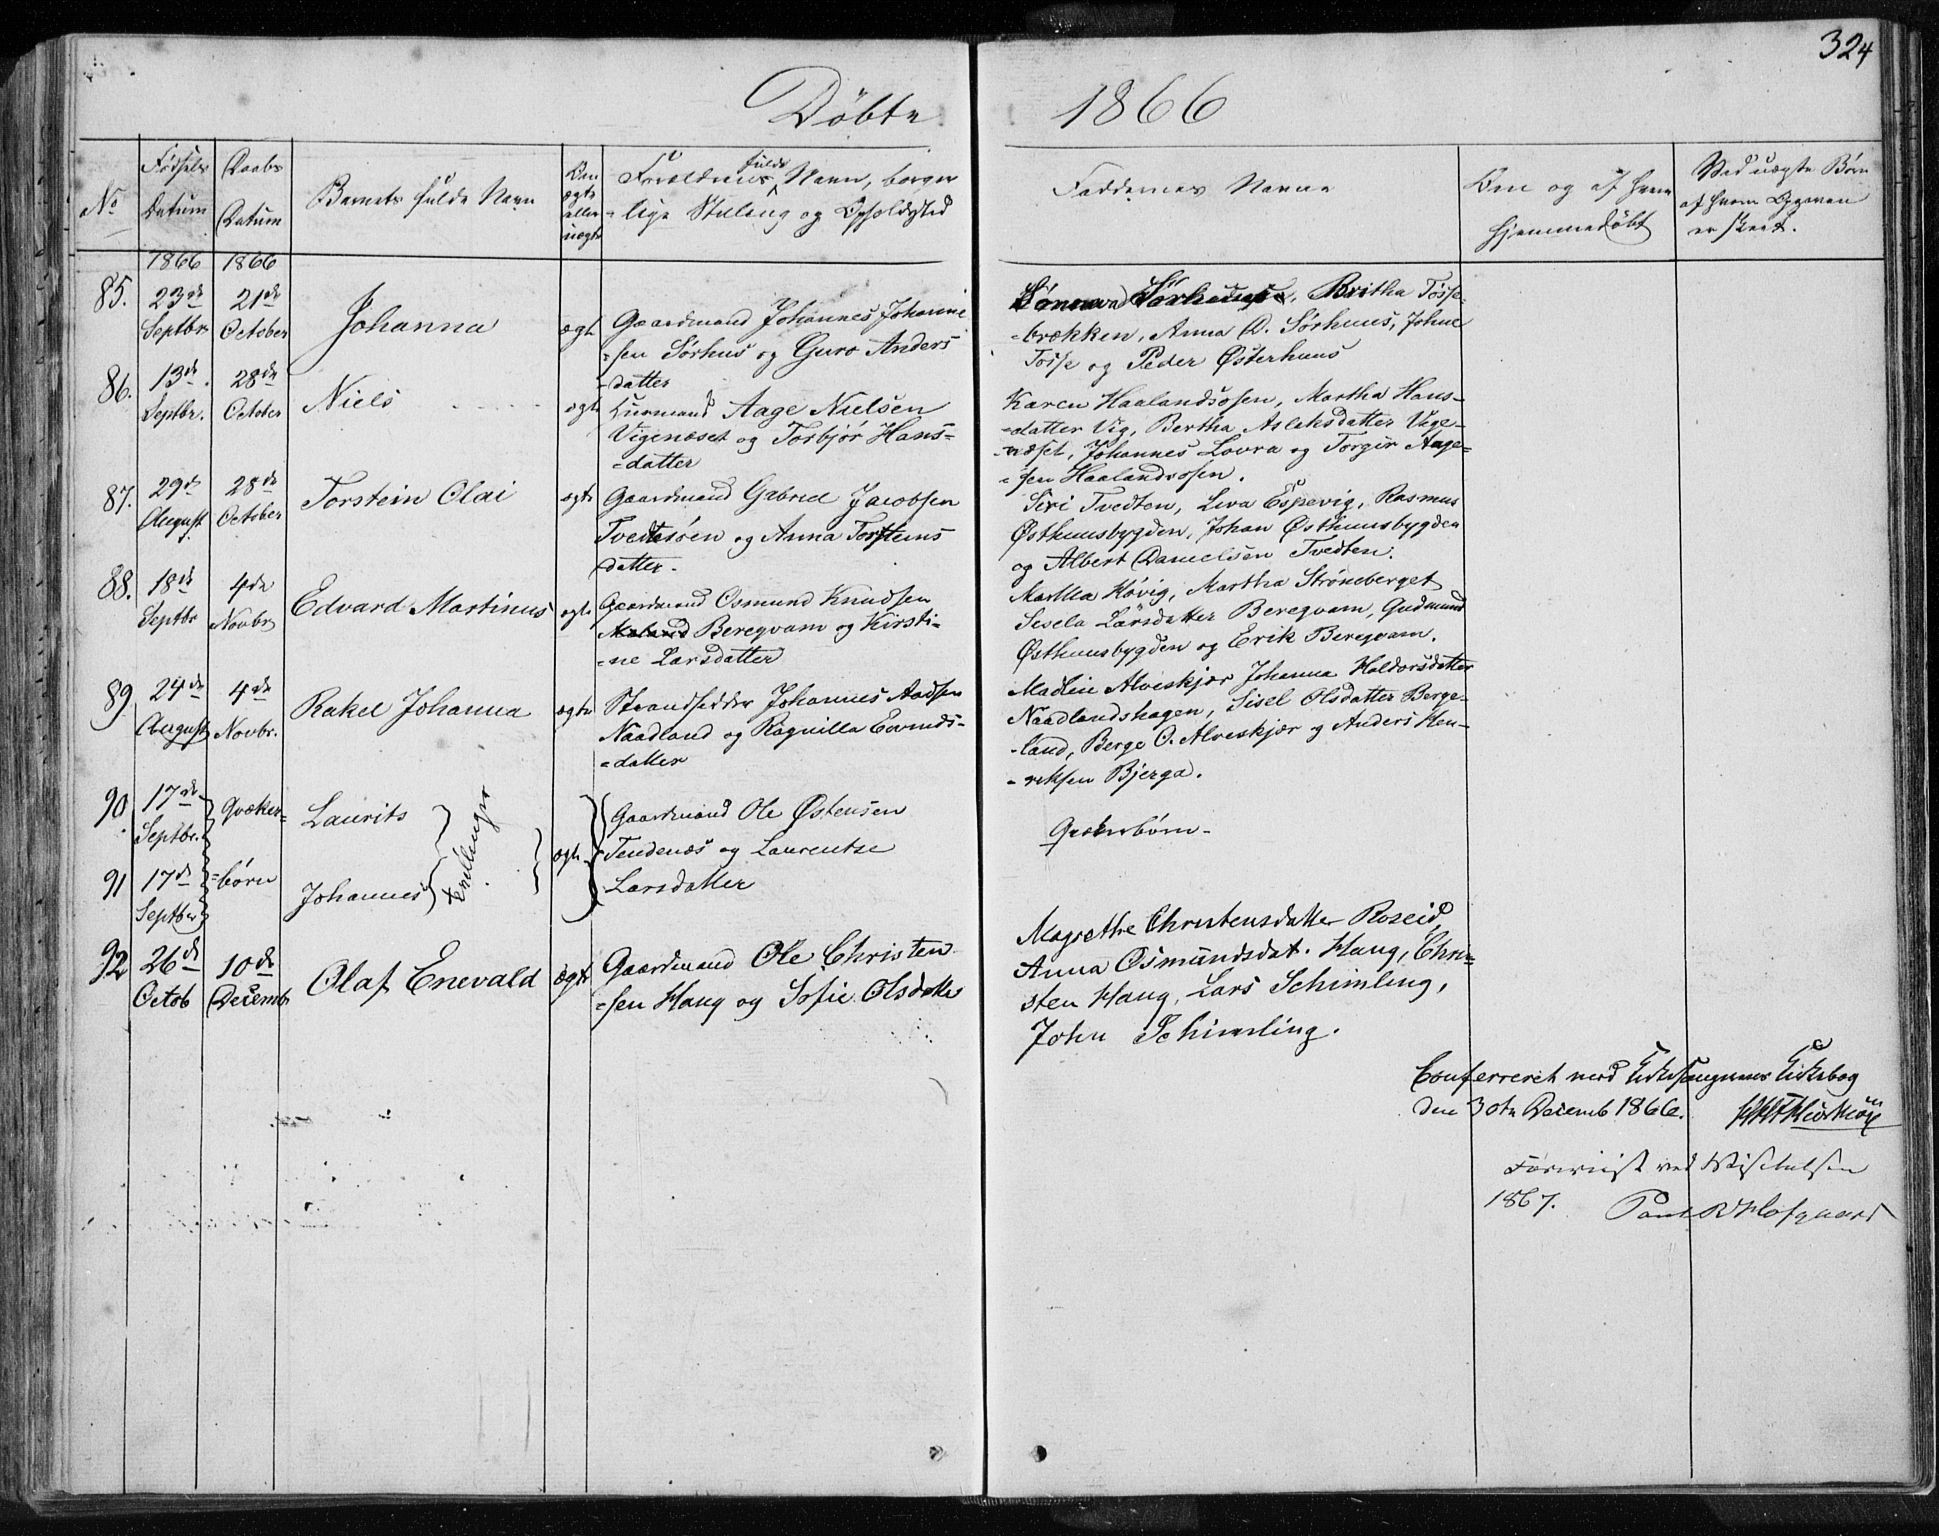 324
Døbte 1866
No
Fødsels Datum
Daabs Datum
Barnets fulde Navn
Om ægte eller uægte
Forældrenes fulde Navn, borger
=lige Stilling og Opholdssted
Faddernes Navne
Om og af hvem
hjemmedøbt
Ved uægte Børn
af hvem Opgaven
er skeet.
1866 1866
85.
23de Septbr
21de October
Johanna
ægte
Gaardmand Johannes Johanne
=sen Sørhus og Guro Anders
=datter
Britha Tosse
=brækken, Anna D. Sørhuus, Johne
Tosse og Peder Østerhuus
86.
13de Septbr.
28de October
Niels
ægte
Huusmand Aage Nielsen
Vigenæset og Torbjør Hans=
=datter
Karen Haalandsosen, Martha Hans-
=datter Vig, Bertha Aslaksdatter Vige-
-næset, Johannes Lovra og Torgir Aage=
=sen Haalandsosen.
87.
29de August
28de October
Torstein Olai
ægte
Gaardmand Gabriel Jacobsen
Tvedtesøen og Anna Torsteins
datter.
Siri Tvedten, Liva Espevig, Rasmus
Østhuusbygden, Johan Østhuusbygden
og Albert Danielsen Tvedten.
88.
18de Septbr
4de Novbr
Edvard Martinus
ægte
Gaardmand Osmund Knudsen
Beregvam og Kirsti=
=ne Larsdatter
Martha Høvig, Martha Strøneberget
Sesela Larsdatter Beregvam, Gudmund
Østhuusbygden og Erik Beregvam.
89
24de August
4de Novbr.
Rakel Johanna
ægte
Strandsidder Johannes Aadsen
Naadland og Ragnilla Eevinds-
=datter
Madlin Alveskjær Johanna Haldorsdatter
Naadlandshagen, Sisel Olsdatter Berge-
-land, Berge O. Alveskjær og Anders Hen-
-riksen Bjerga.
90
17de Septbr.
Qvæker=
Laurits
Tvillinger
ægte
Gaardmand Ole Østensen
Tendenæs og Laurentse
Larsdatter
Qvækerbørn-
91
17de Septbr
=børn
Johannes
92
26de Octob
10de Decemb
Olaf Enevald
ægte
Gaardmand Ole Christen
=sen Haug og Sofie Olsdatter
Magrethe Christensdatter Roseid,
Anna Osmundsdat. Haug, Chri=
sten Haug, Lars Schimling,
John Schimling.
Confereret med Kirkesangerens Kirkebog
den 30te Decemb 1866.
Foreviist ved Visitatsen
1867. Paul Hofgaard